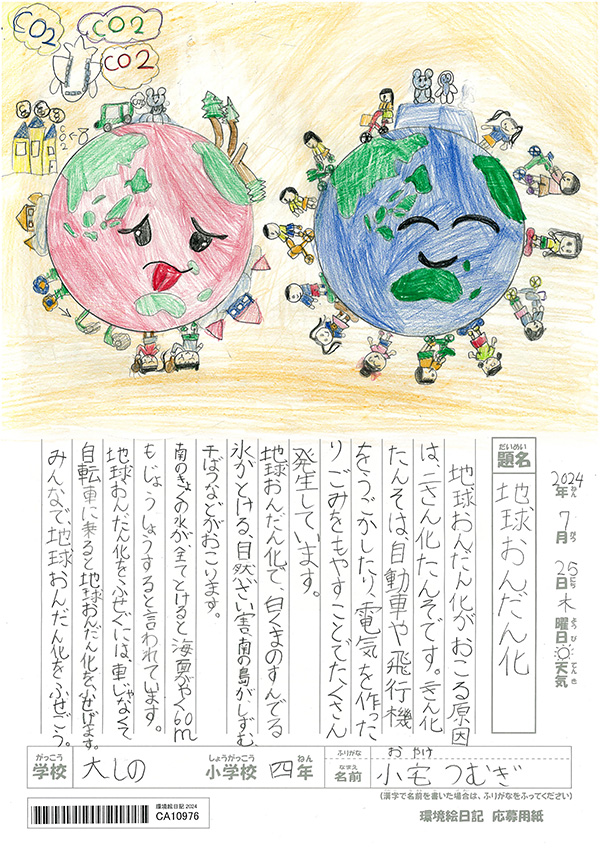 CO2
CO2
CO2
CO2
2024年 7月 25日 木曜日 天気
ねん
がつ
にち
よう び
てん き
だいめい
題名
地球おんだん化
地球おんだん化がおこる原因
は、二さん化たんそです。二さん化
たんそは、自動車や飛行機
をうごかしたり、電気を作った
りごみをもやすことでたくさん
発生しています。
地球おんだん化で、白くまのすんでる
氷がとける、自然さい害、南の島がしずむ、
干ばつなどがおこります。
南のきょくの氷が全てとけると海面がやく60m
もじょうしょうすると言われています。
地球おんだん化をふせぐには、車じゃなくて
自転車に乗ると地球おんだん化をふせげます。
みんなで、地球おんだん化をふせごう。
がっこう
学校
大しの
しょうがっこう
小学校
四
ねん
年
ふりがな
お やけ
なまえ
名前
小宅 つむぎ
(漢字で名前を書いた場合は、ふりがなをふってください)
環境絵日記 2024
CA10976
環境絵日記 応募用紙